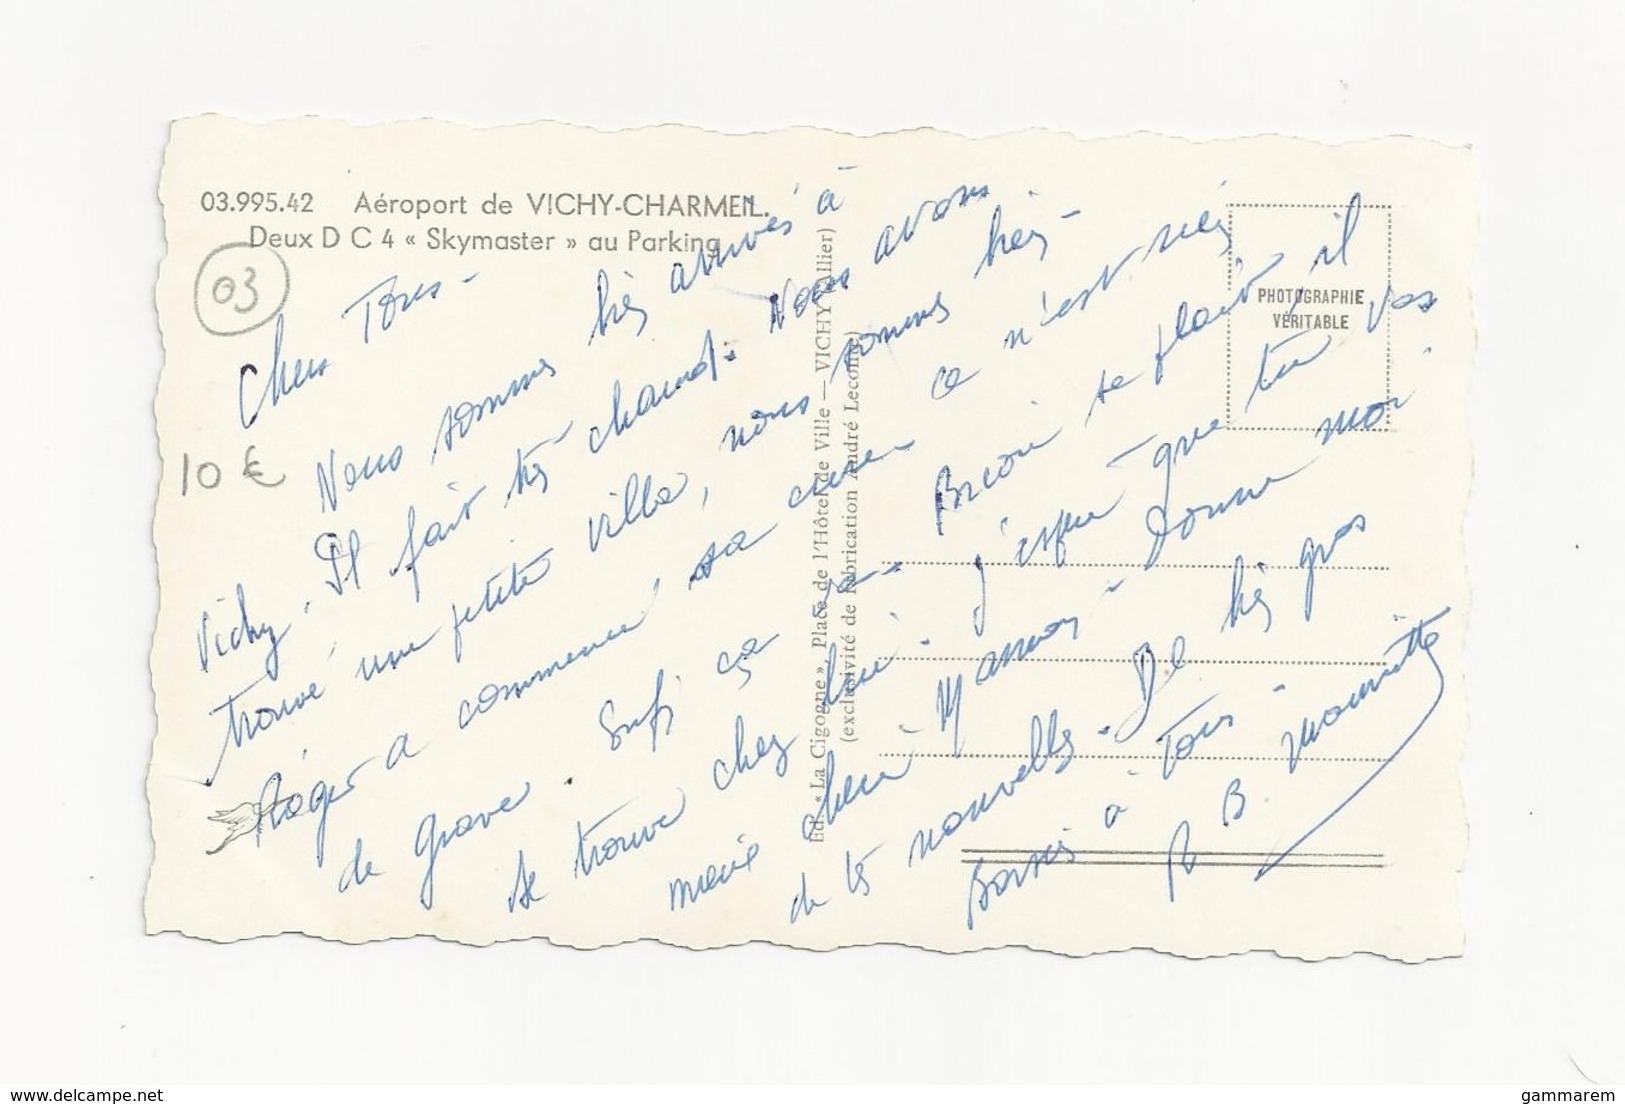 03.995.42 Aéroport de VICHY-CHARMEIL.
Deux D C 4 « Skymaster » au Parking
03
10 €
Chers Tous -
Nous sommes bien arrivés à
Vichy. Il fait très chaud. Nous avons
trouvé une petite villa, nous sommes bien
Roger a commencé sa cure ce n'est rien
de grave. Sufi ça va - se plait il
se trouve chez lui. J'espère que tu vas
mieux chère Maman - Donne moi
de tes nouvelles. De très gros
baisers à Tous
R B Mauricette
Ed. « La Cigogne », Place de l'Hôtel de Ville — VICHY (Allier)
(exclusivité de fabrication André Leconte)
PHOTOGRAPHIE
VÉRITABLE
delcampe.net
gammarem